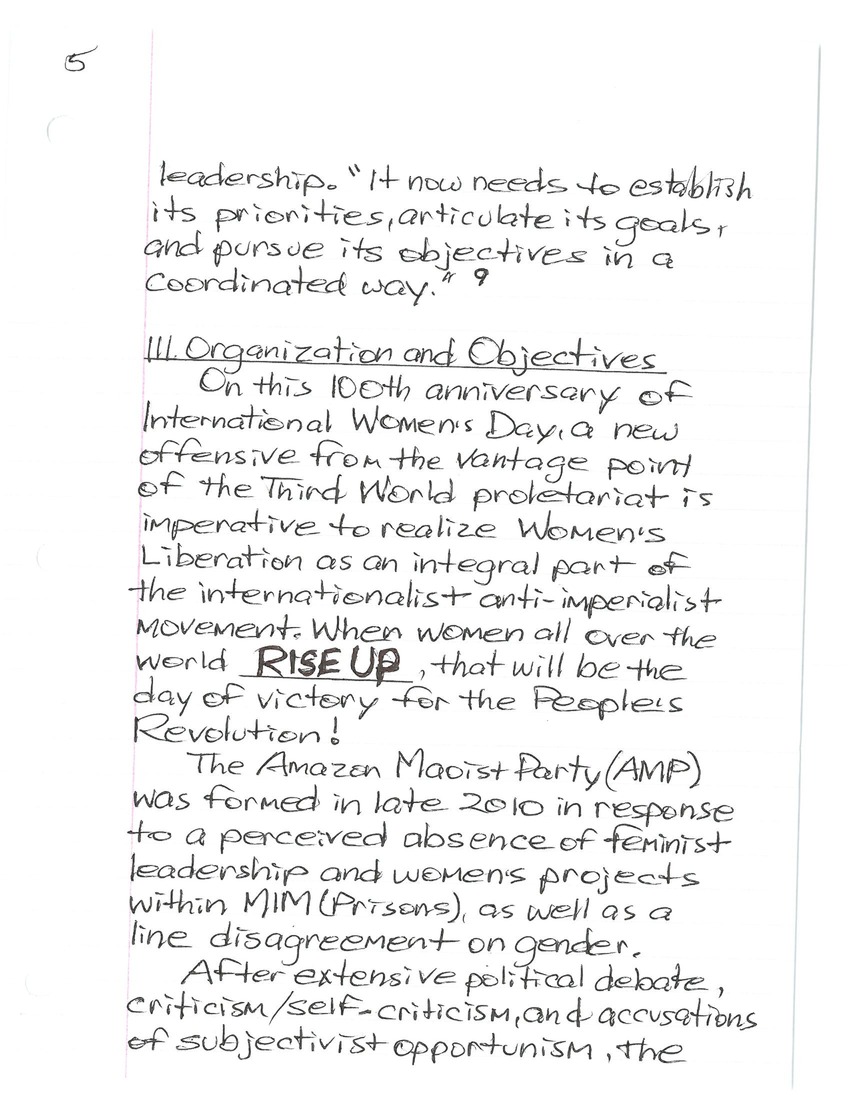 5
leadership. "It now needs to establish
its priorities, articulate its goals,
and pursue its objectives in a
coordinated way." 9
III. Organization and Objectives
On this 100th anniversary of
International Women's Day, a new
offensive from the vantage point
of the Third World proletariat is
imperative to realize Women's
Liberation as an integral part of
the internationalist anti-imperialist
movement. When women all over the
world RISE UP, that will be the
day of victory for the People's
Revolution!
The Amazon Maoist Party (AMP)
was formed in late 2010 in response
to a perceived absence of feminist
leadership and women's projects
within MIM (Prisons), as well as a
line disagreement on gender.
After extensive political debate,
criticism/self-criticism, and accusations
of subjectivist opportunism, the